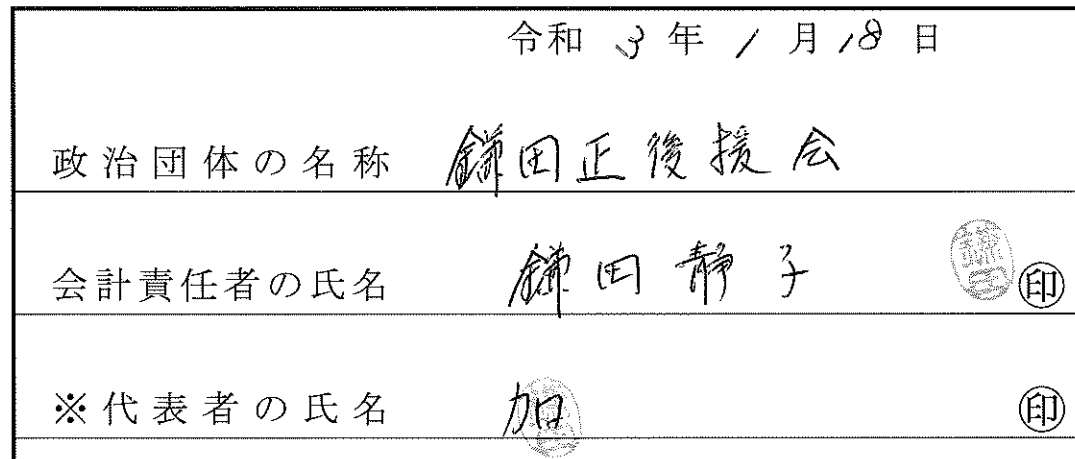 令和 3 年 1 月 18 日
政治団体の名称 鎌田正後援会
会計責任者の氏名 鎌田静子 鎌田 ㊞
※代表者の氏名 ㊞